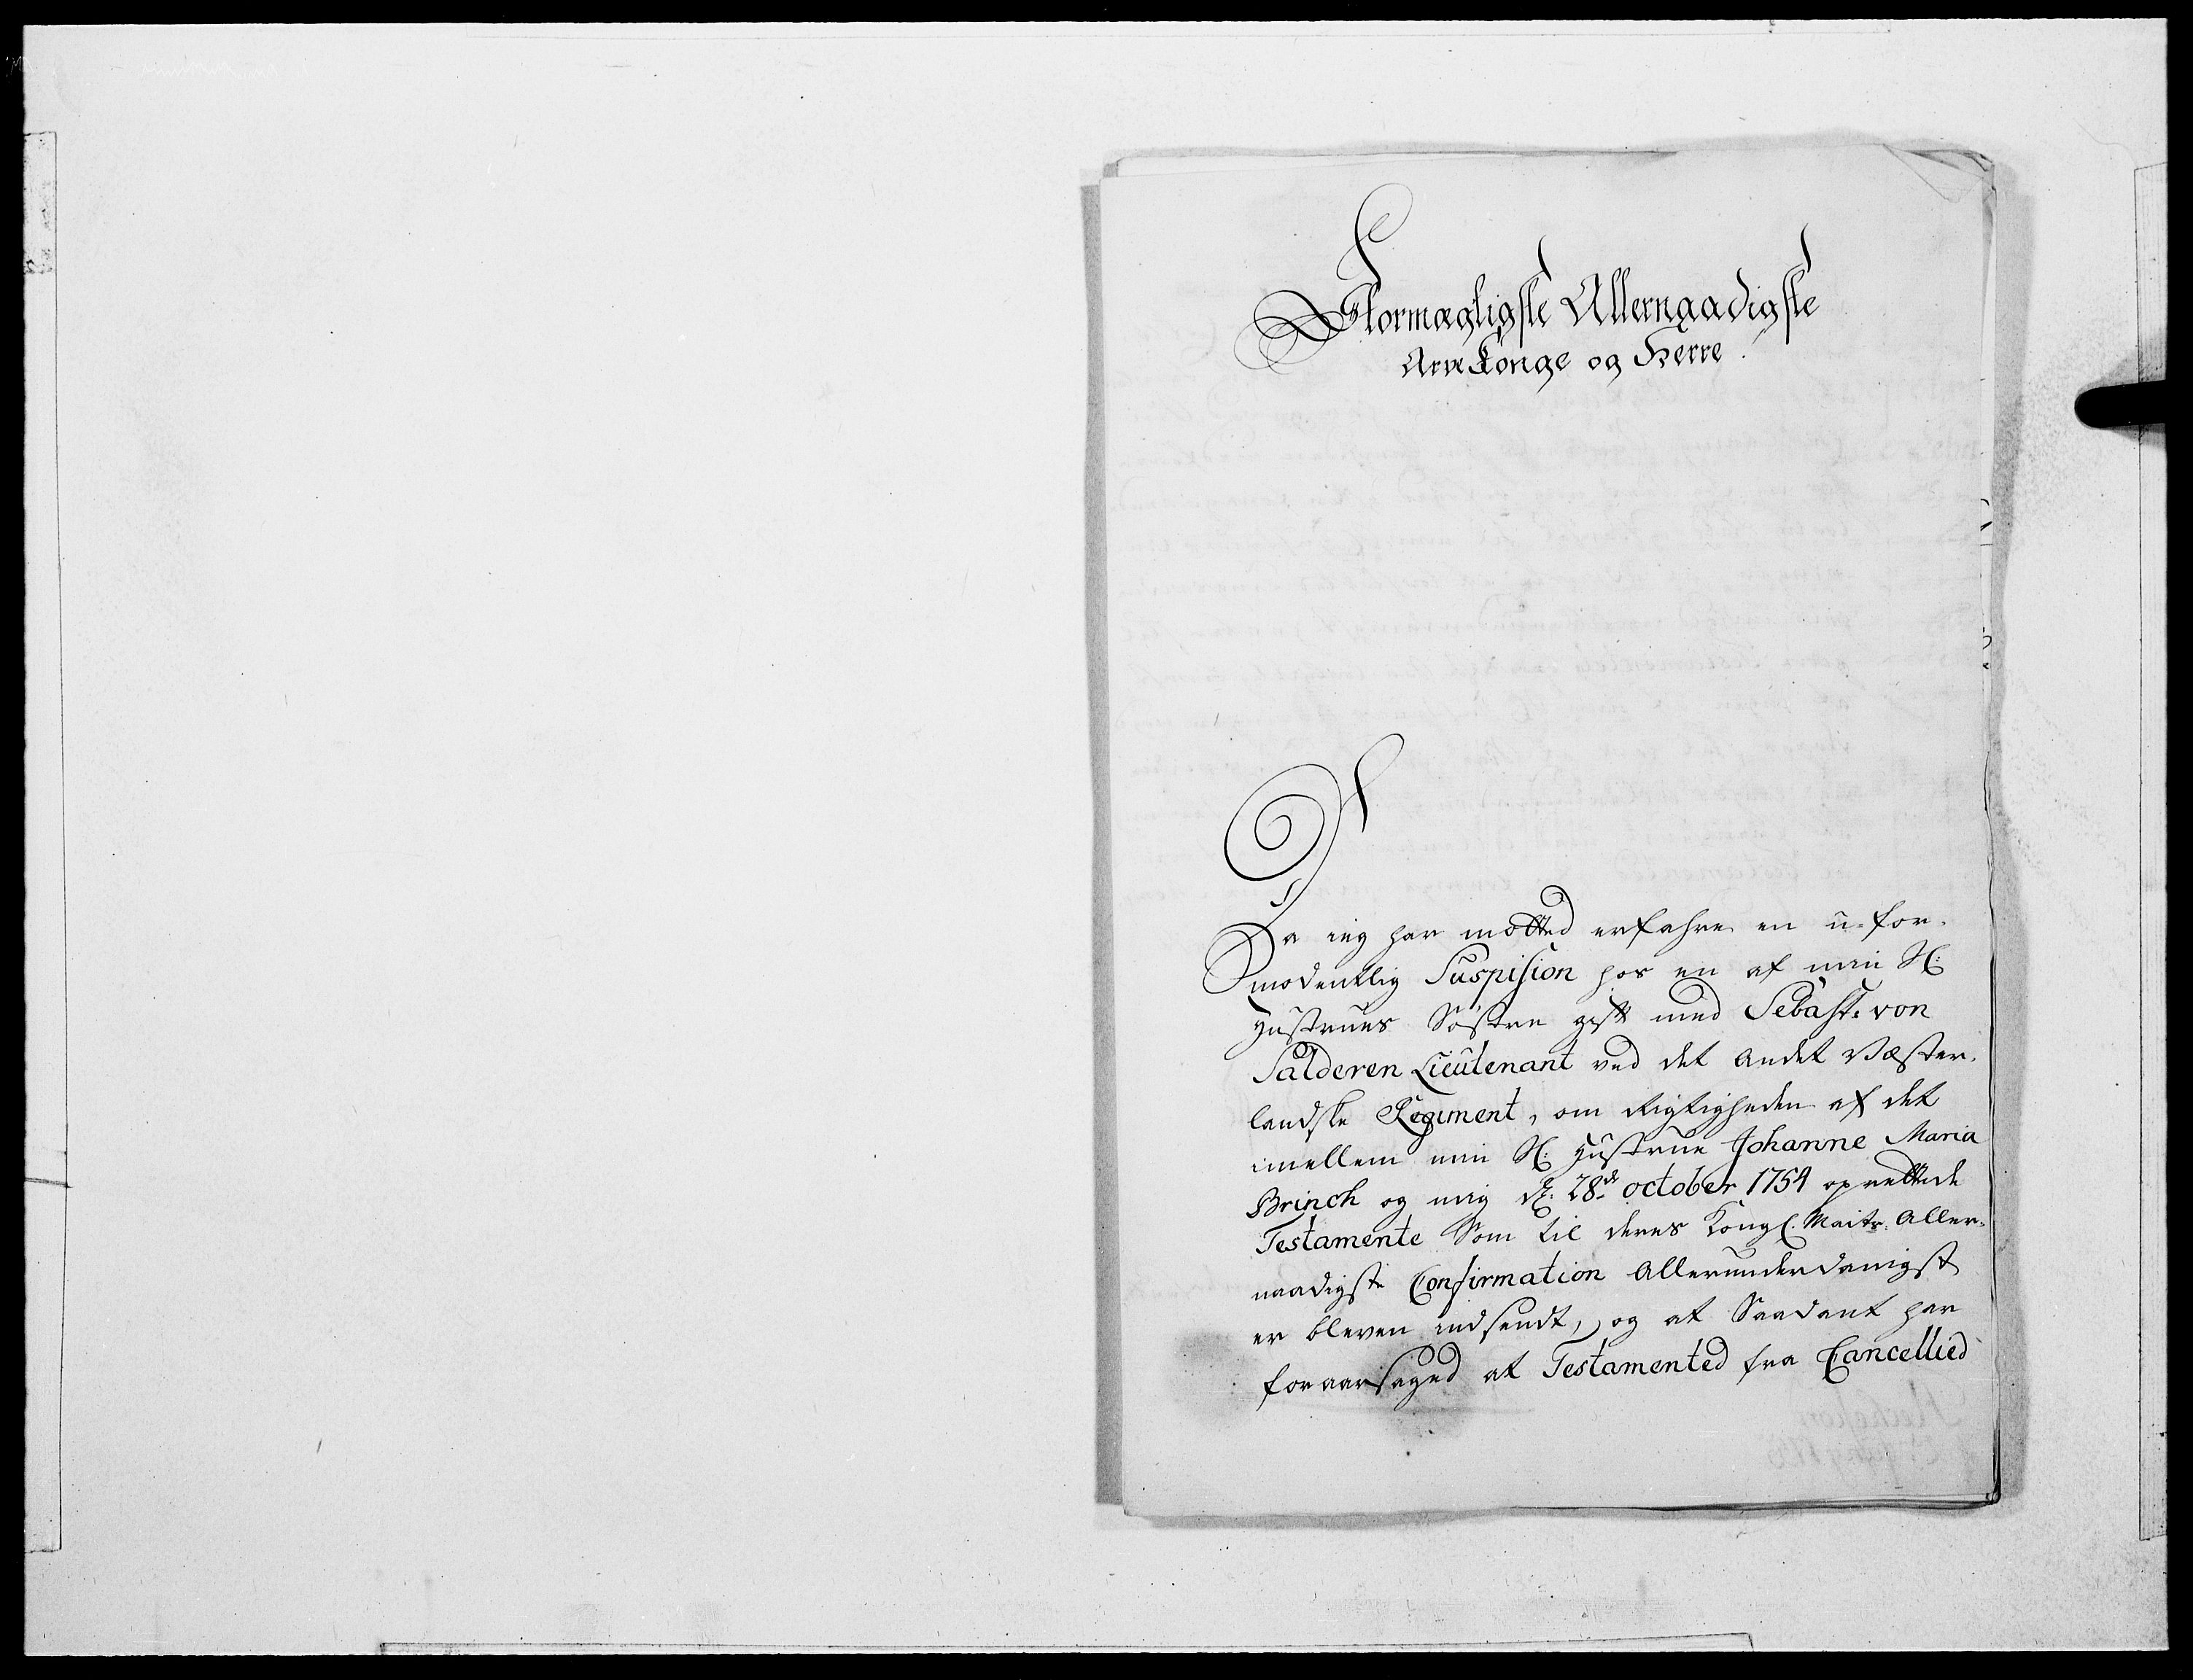 Stormægtigste Allernaadigste
Arve Konge og Herre.
Da ieg har mötted erfahre en u-for-
modentlig Suspision hos en af min Sl:
Hustrues Söstre gift med Sebast: von
Salderen Lieutenant ved det Andet Væster-
landske Regiment, om Rigtigheden af det
imellem min Sl: Hustrue Johanne Maria
Brinch og mig d: 28de October 1754 oprettede
Testamente Som til deres Kongl. Maits: Aller-
naadigste Confirmation Allerunderdanigst
er bleven indsendt, og at Saadant har
foraarsaged at Testamented fra Cancellied